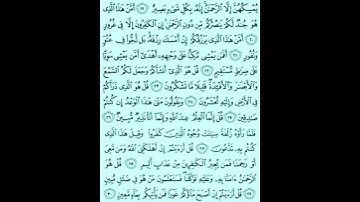 يُمْسِكُهُنَّ إِلَّا الرَّحْمَٰنُ إِنَّهُ بِكُلِّ شَيْءٍ بَصِيرٌ ١٩ أَمَّنْ هَٰذَا الَّذِي
هُوَ جُندٌ لَّكُمْ يَنصُرُكُم مِّن دُونِ الرَّحْمَٰنِ إِنِ الْكَافِرُونَ إِلَّا فِي غُرُورٍ
٢٠ أَمَّنْ هَٰذَا الَّذِي يَرْزُقُكُمْ إِنْ أَمْسَكَ رِزْقَهُ بَل لَّجُّوا فِي عُتُوٍّ
وَنُفُورٍ ٢١ أَفَمَن يَمْشِي مُكِبًّا عَلَىٰ وَجْهِهِ أَهْدَىٰ أَمَّن يَمْشِي سَوِيًّا
عَلَىٰ صِرَاطٍ مُّسْتَقِيمٍ ٢٢ قُلْ هُوَ الَّذِي أَنشَأَكُمْ وَجَعَلَ لَكُمُ السَّمْعَ
وَالْأَبْصَارَ وَالْأَفْئِدَةَ قَلِيلًا مَّا تَشْكُرُونَ ٢٣ قُلْ هُوَ الَّذِي ذَرَأَكُمْ
فِي الْأَرْضِ وَإِلَيْهِ تُحْشَرُونَ ٢٤ وَيَقُولُونَ مَتَىٰ هَٰذَا الْوَعْدُ إِن كُنتُمْ
صَادِقِينَ ٢٥ قُلْ إِنَّمَا الْعِلْمُ عِندَ اللَّهِ وَإِنَّمَا أَنَا نَذِيرٌ مُّبِينٌ ٢٦
فَلَمَّا رَأَوْهُ زُلْفَةً سِيئَتْ وُجُوهُ الَّذِينَ كَفَرُوا وَقِيلَ هَٰذَا الَّذِي
كُنتُم بِهِ تَدَّعُونَ ٢٧ قُلْ أَرَأَيْتُمْ إِنْ أَهْلَكَنِيَ اللَّهُ وَمَن مَّعِيَ
أَوْ رَحِمَنَا فَمَن يُجِيرُ الْكَافِرِينَ مِنْ عَذَابٍ أَلِيمٍ ٢٨ قُلْ هُوَ
الرَّحْمَٰنُ آمَنَّا بِهِ وَعَلَيْهِ تَوَكَّلْنَا فَسَتَعْلَمُونَ مَنْ هُوَ فِي ضَلَالٍ مُّبِينٍ
٢٩ قُلْ أَرَأَيْتُمْ إِنْ أَصْبَحَ مَاؤُكُمْ غَوْرًا فَمَن يَأْتِيكُم بِمَاءٍ مَّعِينٍ ٣٠